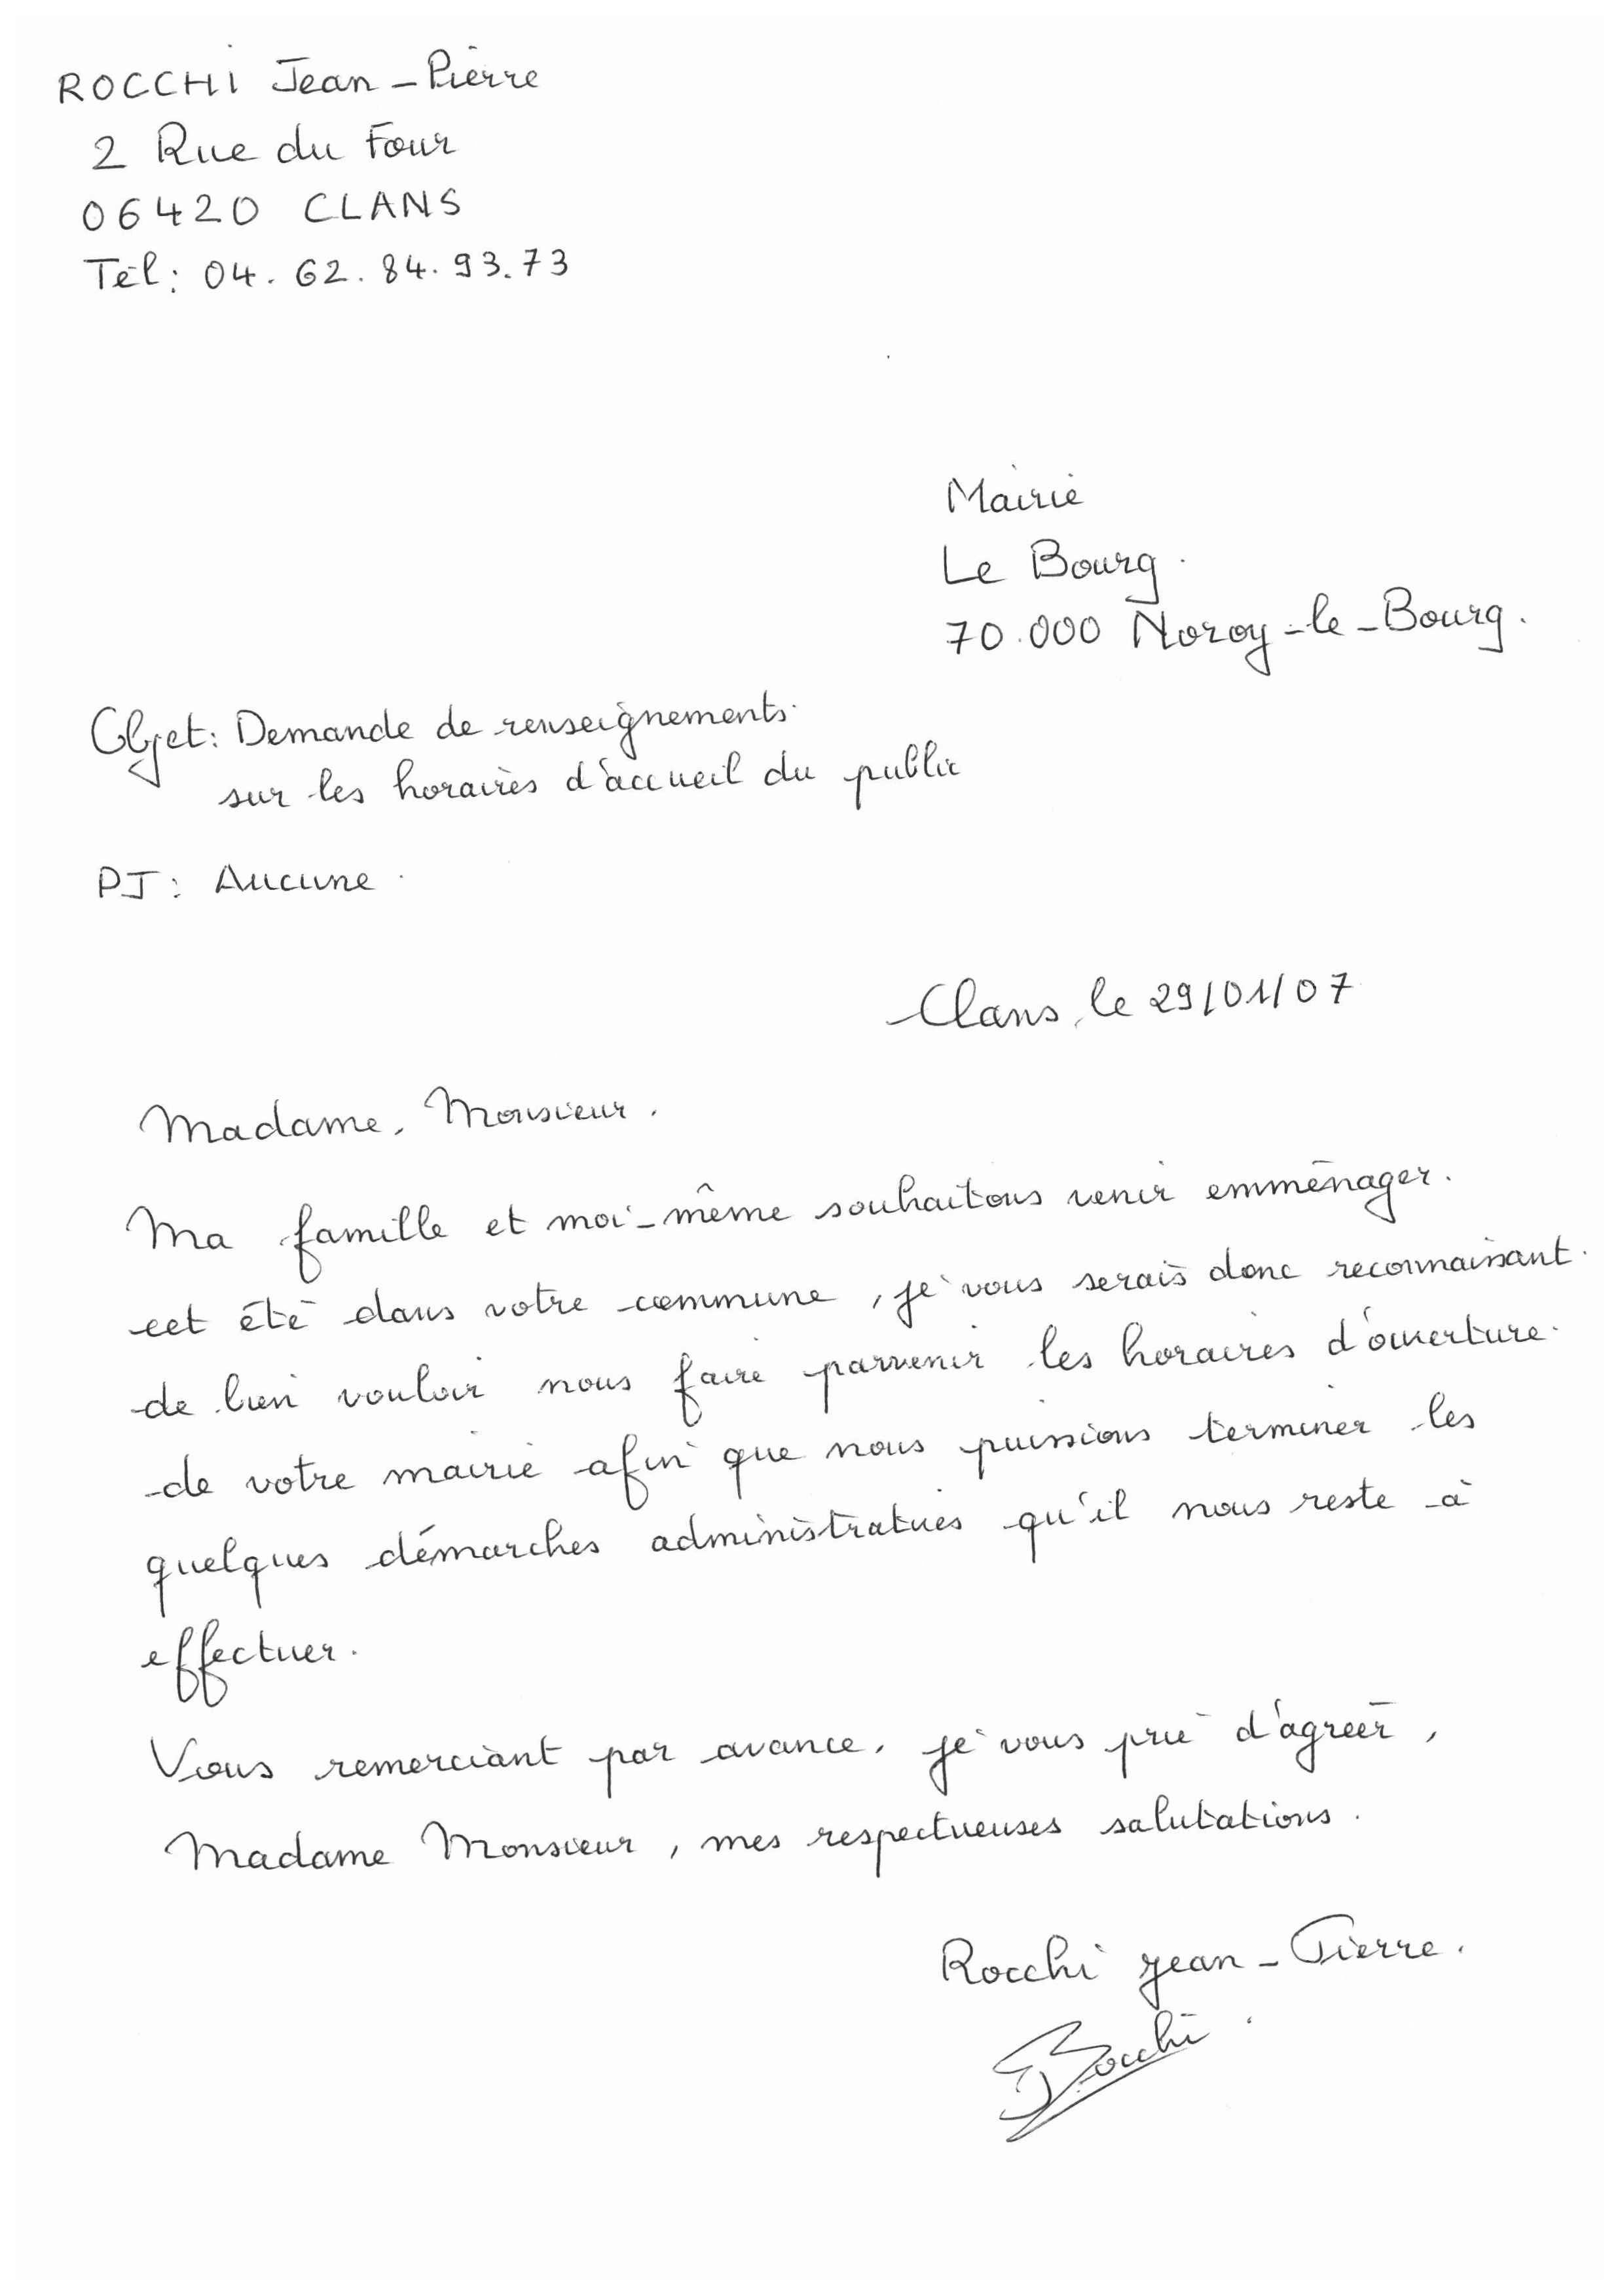 ROCCHI Jean-Pierre
2 Rue du Four
06420 CLANS
Tél: 04. 62. 84. 93. 73
Mairie
Le Bourg.
70.000 Noroy-le-Bourg.
Objet: Demande de renseignements
sur les horaires d'accueil du public
PJ: Aucune.
Clans, le 29/01/07
Madame, Monsieur.
Ma famille et moi-même souhaitons venir emménager.
cet été dans votre commune, je vous serais donc reconnaissant.
de bien vouloir nous faire parvenir les horaires d'ouverture.
de votre mairie afin que nous puissions terminer les
quelques démarches administratives qu'il nous reste à
effectuer.
Vous remerciant par avance, je vous prie d'agréer,
Madame Monsieur, mes respectueuses salutations.
Rocchi Jean-Pierre.
Rocchi.